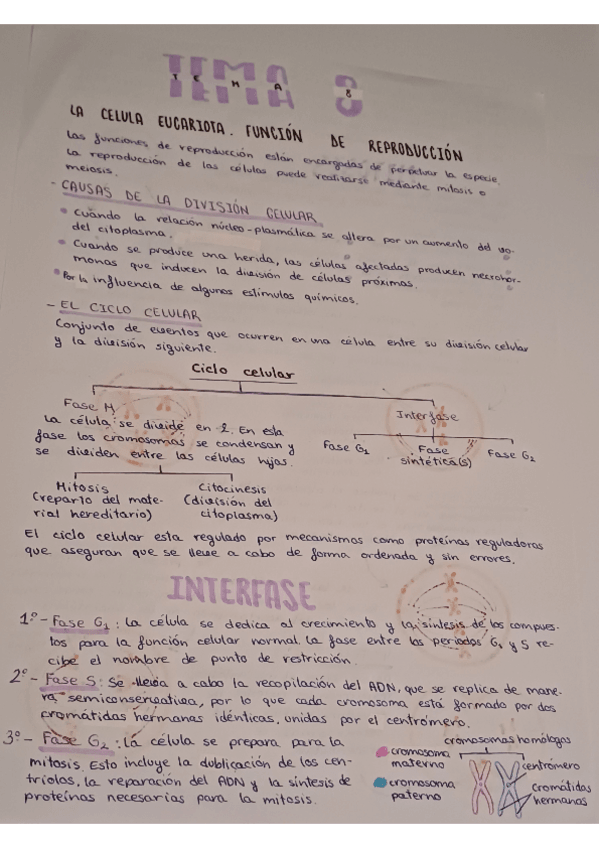 TEMA 8
LA CELULA EUCARIOTA. FUNCIÓN DE REPRODUCCIÓN
Las funciones de reproducción están encargadas de perpetuar la especie.
La reproducción de las células puede realizarse mediante mitosis o
meiosis.
- CAUSAS DE LA DIVISIÓN CELULAR
• Cuando la relación núcleo-plasmática se altera por un aumento del vo-
del citoplasma.
• Cuando se produce una herida, las células afectadas producen necrohor-
monas que inducen la división de células próximas.
• Por la influencia de algunos estímulos químicos.
- EL CICLO CELULAR
Conjunto de eventos que ocurren en una célula entre su división celular
y la división siguiente.
Ciclo celular
Fase M
La célula se divide en 2. En esta
fase los cromosomas se condensan y
se dividen entre las células hijas.
Interfase
Fase G1
Fase
sintética(s)
Fase G2
Mitosis
(reparto del mate-
rial hereditario)
Citocinesis
(división del
citoplasma)
El ciclo celular esta regulado por mecanismos como proteínas reguladoras
que aseguran que se lleve a cabo de forma ordenada y sin errores.
INTERFASE
1º- Fase G1: La célula se dedica al crecimiento y la síntesis de los compues-
tos para la función celular normal. La fase entre los periodos G1 y S re-
cibe el nombre de punto de restricción.
2º- Fase S: Se lleva a cabo la recopilación del ADN, que se replica de mane-
ra semiconservativa, por lo que cada cromosoma está formado por dos
cromátidas hermanas idénticas, unidas por el centrómero.
3º- Fase G2: la célula se prepara para la
mitosis. Esto incluye la dublicación de los cen-
triolos, la reparación del ADN y la síntesis de
proteínas necesarias para la mitosis.
cromosomas homólogos
cromosoma
materno
cromosoma
paterno
centrómero
cromátidas
hermanas